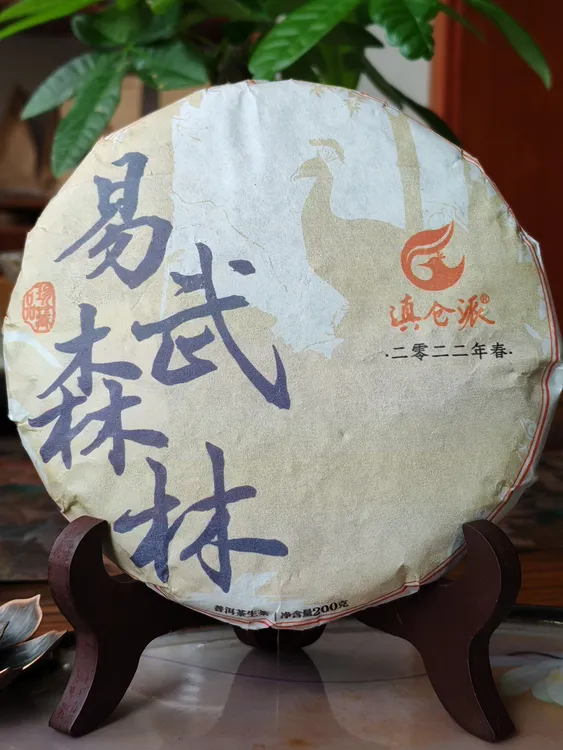 易武
森林
滇仓派®
·二零二二年春·
普洱茶生茶 | 净含量200克